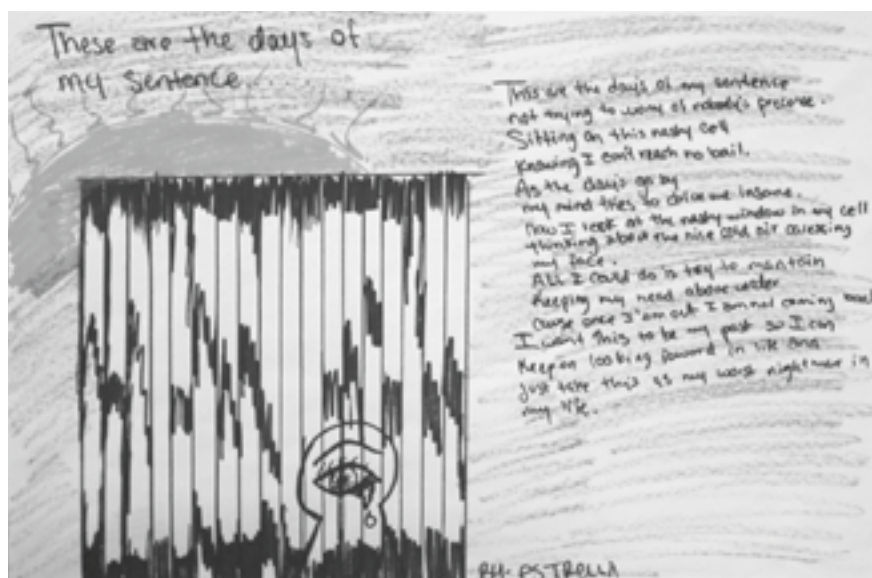 These are the days of
my sentence...
This are the days of my sentence
not trying to worry of nobody's presence.
Sitting on this nasty cell
knowing I can't reach no bail.
As the days go by
my mind tries to drive me insane.
now I look at the nasty window in my cell
thinking about the nice cold air caressing
my face.
All I could do is try to maintain
Keeping my head above water
Cause once I am out I am not coming back
I want this to be my past so I can
Keep on looking foward in life and
just take this as my worst nightmare in
my life.
BY: ESTRELLA